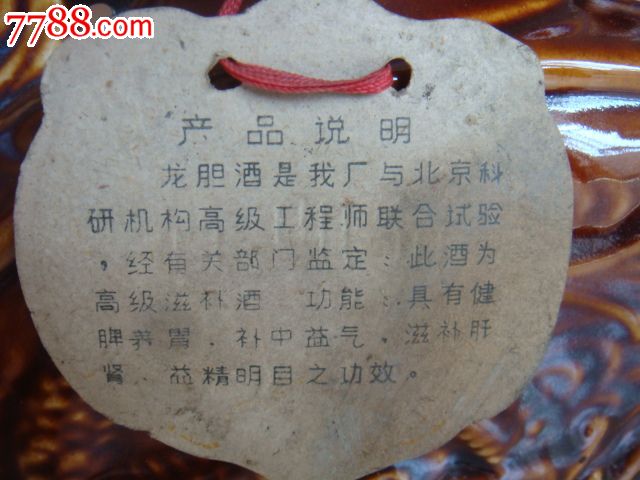 7788.com
产品说明
龙胆酒是我厂与北京科
研机构高级工程师联合试验
，经有关部门监定：此酒为
高级滋补酒 功能：具有健
脾养胃、补中益气，滋补肝
肾、益精明目之功效。